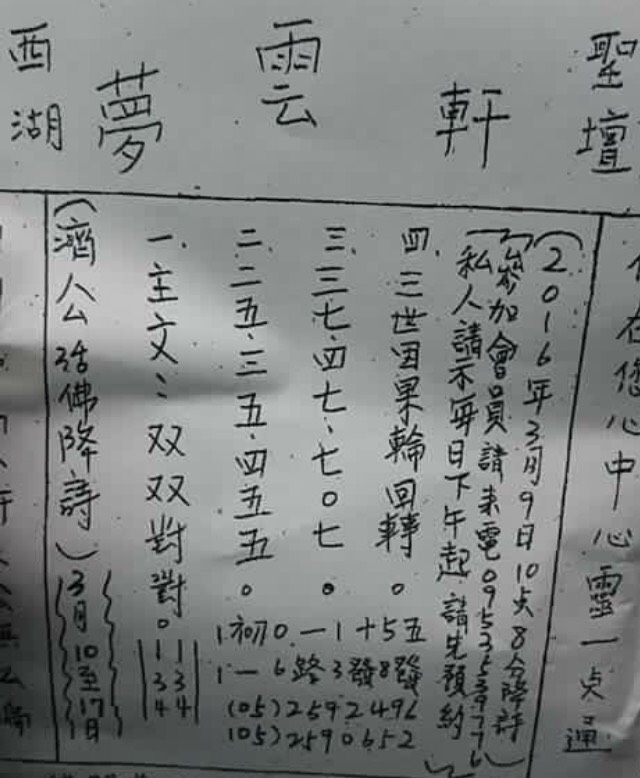 西湖 夢雲軒 聖壇
(濟公活佛降詩)
3月10至17日
一、主文：双双對對。
11
33
44
二、二五、三五、四五五。
三、三七、四七、七0七。
四、三世因果輪回轉。
1初0一1十5五
1一6路3發8發
(05)2592496
(05)2590652
(2016年3月9日10点8分降詩)
參加會員請來電
私人請示每日下午起請先預約
在您心中心靈一点通